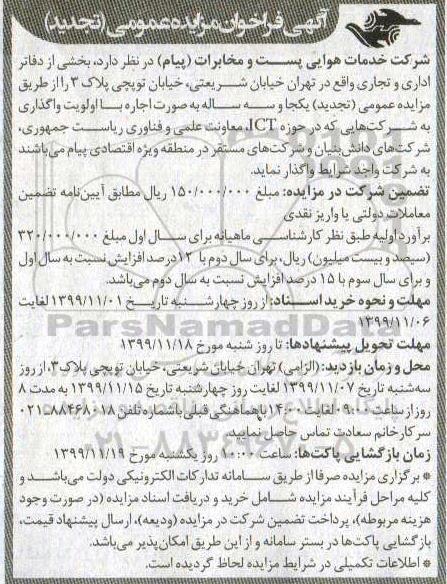 آگهی فراخوان مزایده عمومی (تجدید)
شرکت خدمات هوایی پست و مخابرات (پیام) در نظر دارد، بخشی از دفاتر
اداری و تجاری واقع در تهران خیابان شریعتی، خیابان توپچی پلاک ۳ را از طریق
مزایده عمومی (تجدید) یکجا و سه ساله به صورت اجاره با اولویت واگذاری
به شرکت‌هایی که در حوزه ICT، معاونت علمی و فناوری ریاست جمهوری،
شرکت‌های دانش‌بنیان و شرکت‌های مستقر در منطقه ویژه اقتصادی پیام می‌باشند
به شرکت واجد شرایط واگذار نماید.
تضمین شرکت در مزایده: مبلغ ۱۵۰/۰۰۰/۰۰۰ ریال مطابق آیین‌نامه تضمین
معاملات دولتی یا واریز نقدی
برآورد اولیه طبق نظر کارشناسی ماهیانه برای سال اول مبلغ ۳۲۰/۰۰۰/۰۰۰
(سیصد و بیست میلیون) ریال، برای سال دوم با ۱۲درصد افزایش نسبت به سال اول
و برای سال سوم با ۱۵ درصد افزایش نسبت به سال دوم می‌باشد.
مهلت و نحوه خرید اسناد: از روز چهارشنبه تاریخ ۱۳۹۹/۱۱/۰۱ لغایت
۱۳۹۹/۱۱/۰۶
مهلت تحویل پیشنهادها: تا روز شنبه مورخ ۱۳۹۹/۱۱/۱۸
محل و زمان بازدید: (الزامی) تهران خیابان شریعتی، خیابان توپچی پلاک۳، از روز
سه‌شنبه تاریخ ۱۳۹۹/۱۱/۰۷ لغایت روز چهارشنبه تاریخ ۱۳۹۹/۱۱/۱۵ به مدت ۸
روز از ساعت ۰۹:۰۰ لغایت ۱۴:۰۰ با هماهنگی قبلی با شماره تلفن ۸۸۴۶۸۰۱۸-۰۲۱
سرکار خانم سعادت تماس حاصل نمایید.
زمان بازگشایی پاکت‌ها: ساعت ۱۰:۰۰ روز یکشنبه مورخ ۱۳۹۹/۱۱/۱۹
* برگزاری مزایده صرفا از طریق سامانه تدارکات الکترونیکی دولت می‌باشند و
کلیه مراحل فرآیند مزایده شامل خرید و دریافت اسناد مزایده (در صورت وجود
هزینه مربوطه)، پرداخت تضمین شرکت در مزایده (ودیعه)، ارسال پیشنهاد قیمت،
بازگشایی پاکت‌ها در بستر سامانه و از این طریق امکان‌پذیر می‌باشد.
* اطلاعات تکمیلی در شرایط مزایده لحاظ گردیده است.
ParsNamadData